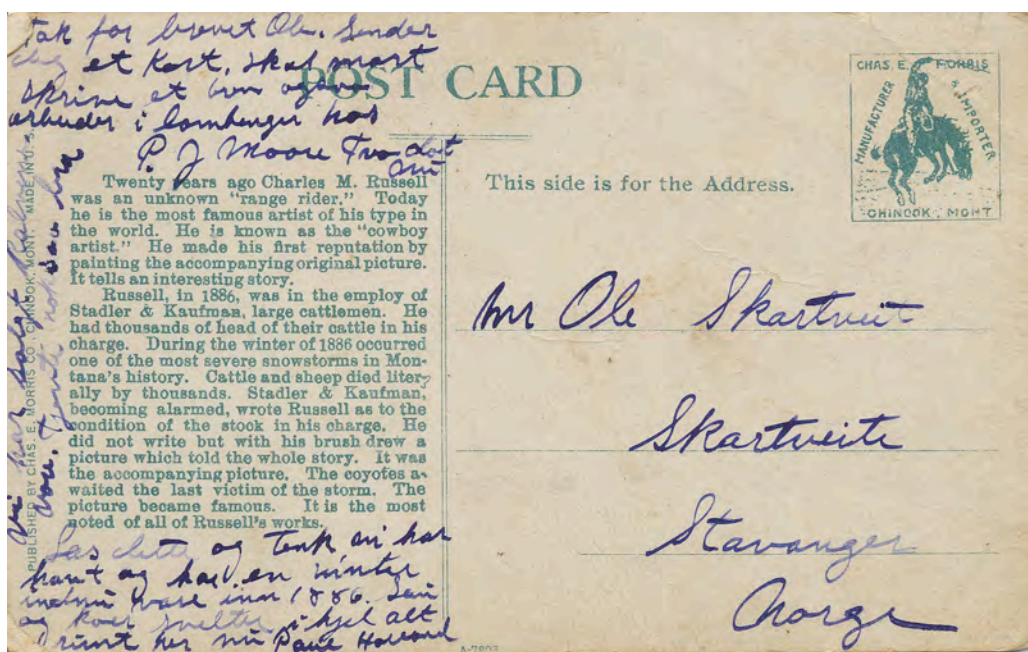 Tak for brevet Ole. Sender
dig et Kort. Skal snart
skrive et brev ogsaa
arbeider i
P. J. Moore
nu
POST CARD
CHAS. E. MORRIS
MANUFACTURER
& IMPORTER
CHINOOK, MONT
This side is for the Address.
Twenty years ago Charles M. Russell
was an unknown "range rider." Today
he is the most famous artist of his type in
the world. He is known as the "cowboy
artist." He made his first reputation by
painting the accompanying original picture.
It tells an interesting story.
Russell, in 1886, was in the employ of
Stadler & Kaufman, large cattlemen. He
had thousands of head of their cattle in his
charge. During the winter of 1886 occurred
one of the most severe snowstorms in Mon-
tana's history. Cattle and sheep died liter-
ally by thousands. Stadler & Kaufman,
becoming alarmed, wrote Russell as to the
condition of the stock in his charge. He
did not write but with his brush drew a
picture which told the whole story. It was
the accompanying picture. The coyotes a-
waited the last victim of the storm. The
picture became famous. It is the most
noted of all of Russell's works.
PUBLISHED BY CHAS. E. MORRIS CO., CHINOOK, MONT. MADE IN U. S.
vi har solgt
vore
Las dette og tenk vi har
havt og har en vinter
være inn 1886. Sau
og Kver svelter ihjel alt
runt her nu
Mr Ole Skartveit
Skartveite
Stavanger
Norge
A-7803